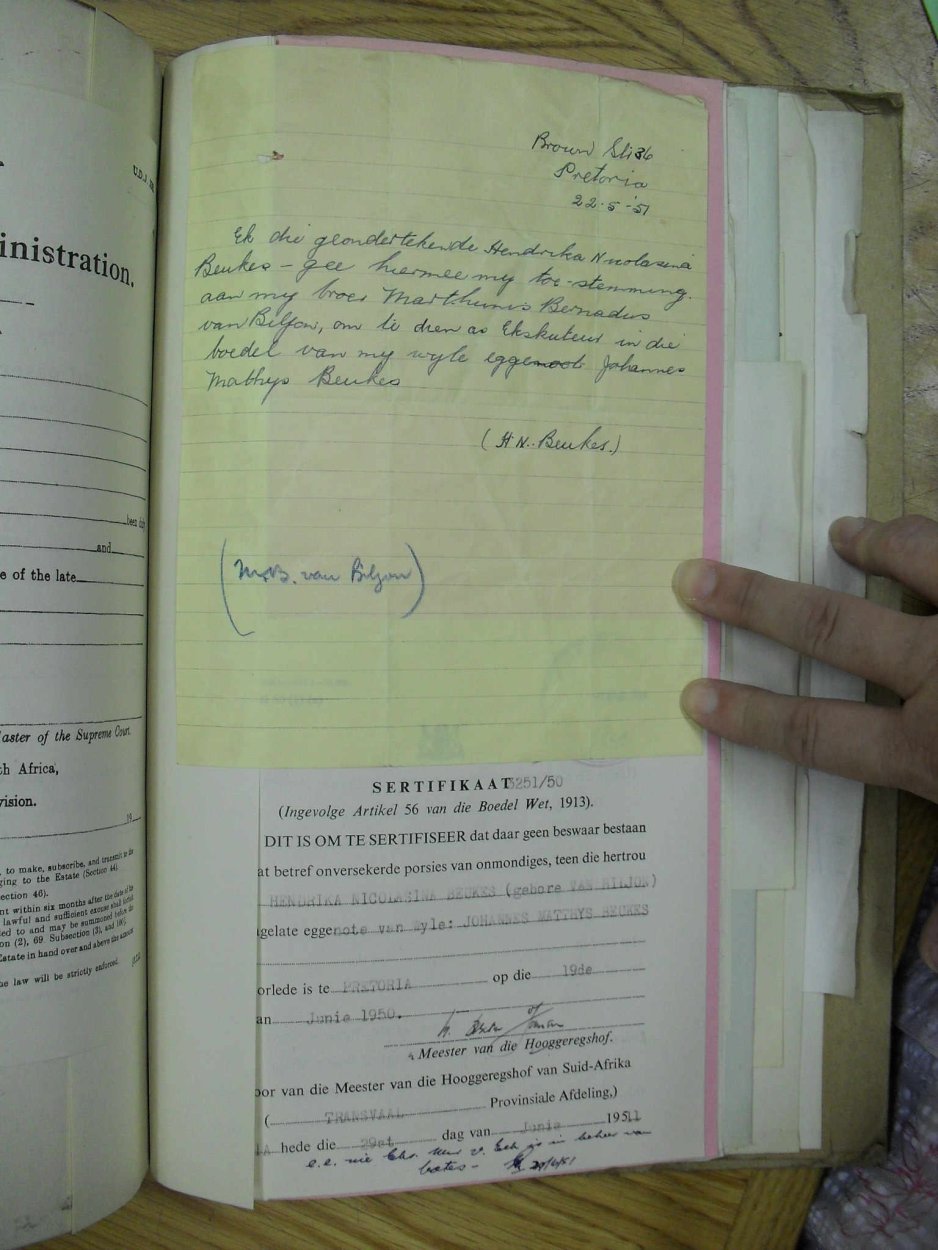 U.D.J.
inistration.
been duly
and
e of the late
Master of the Supreme Court
th Africa,
vision.
19
, to make, subscribe, and transmit to the
ging to the Estate (Section 44).
ection 46).
nt within six months after the date of
lawful and sufficient excuse
led to and may be summoned before the
on (2), 69. Subsection (3), and 106).
Estate in hand over and above the amount
he law will be strictly enforced.
Brown Str 36
Pretoria
22-5-'51
Ek die geondertekende Hendrika Nicolasina
Beukes – gee hiermee my toe-stemming.
aan my broer Marthinus Bernadus
van Biljon, om te dien as Eksekuteur in die
boedel van my wyle eggenoot Johannes
Matthys Beukes
(H N. Beukes.)
(M.B. van Biljon)
SERTIFIKAAT 3251/50
(Ingevolge Artikel 56 van die Boedel Wet, 1913).
DIT IS OM TE SERTIFISEER dat daar geen beswaar bestaan
at betref onversekerde porsies van onmondiges, teen die hertrou
HENDRIKA NICOLASINA BECKES (gebore VAN BILJON)
agelate eggenote van wyle: JOHANNES MATTHYS BECKES
orlede is te PRETORIA op die 19de
an Junie 1950.
Meester van die Hooggeregshof.
oor van die Meester van die Hooggeregshof van Suid-Afrika
( TRANSVAAL Provinsiale Afdeling,)
IA hede die 29st dag van Junie 1951
e.e. nie in beheer van
bates -